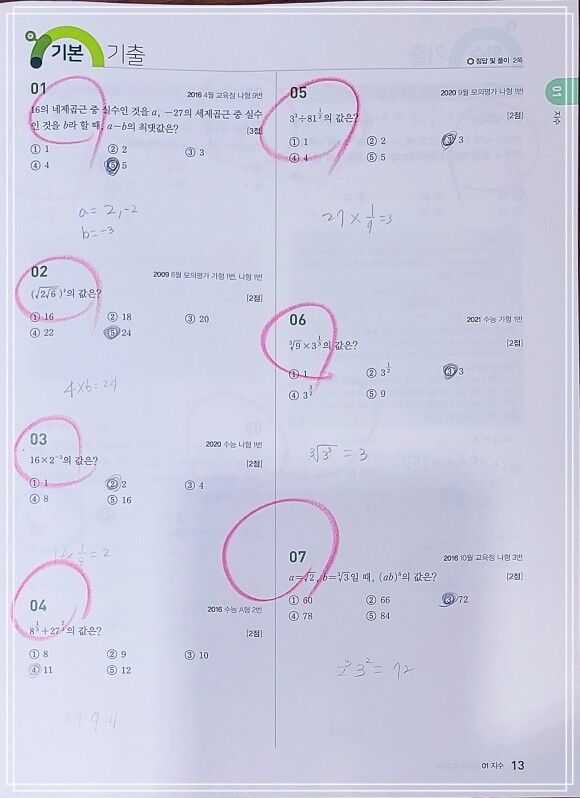 기본 기출
정답 및 풀이 2쪽
01
2016 4월 교육청 나형 9번
16의 네제곱근 중 실수인 것을 a, −27의 세제곱근 중 실수
인 것을 b라 할 때, a−b의 최댓값은?
[3점]
① 1 ② 2 ③ 3
④ 4 ⑤ 5
a = 2, -2
b = -3
02
2009 6월 모의평가 가형 1번, 나형 1번
(√2√6)⁴의 값은?
[2점]
① 16 ② 18 ③ 20
④ 22 ⑤ 24
4×6=24
03
2020 수능 나형 1번
16×2⁻³의 값은?
[2점]
① 1 ② 2 ③ 4
④ 8 ⑤ 16
16× 1/8 = 2
04
2016 수능 A형 2번
8^(1/3)+27^(2/3)의 값은?
[2점]
① 8 ② 9 ③ 10
④ 11 ⑤ 12
05
2020 9월 모의평가 나형 1번
3³÷81^(1/2)의 값은?
[2점]
① 1 ② 2 ③ 3
④ 4 ⑤ 5
27 × 1/9 =3
06
2021 수능 가형 1번
³√9×3^(1/3)의 값은?
[2점]
① 1 ② 3^(1/2) ③ 3
④ 3^(3/2) ⑤ 9
³√3³ = 3
07
2016 10월 교육청 나형 3번
a=√2, b=³√3일 때, (ab)⁶의 값은?
[2점]
① 60 ② 66 ③ 72
④ 78 ⑤ 84
2³ 3² = 72
01
지수
01 지수 13